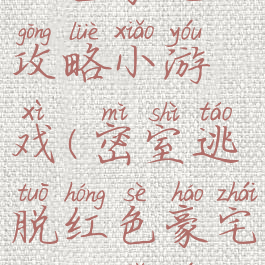 gōng lüè xiǎo yóu
攻略小游
xì mì shì táo
戏(密室逃
tuō hóng sè háo zhái
脱红色豪宅